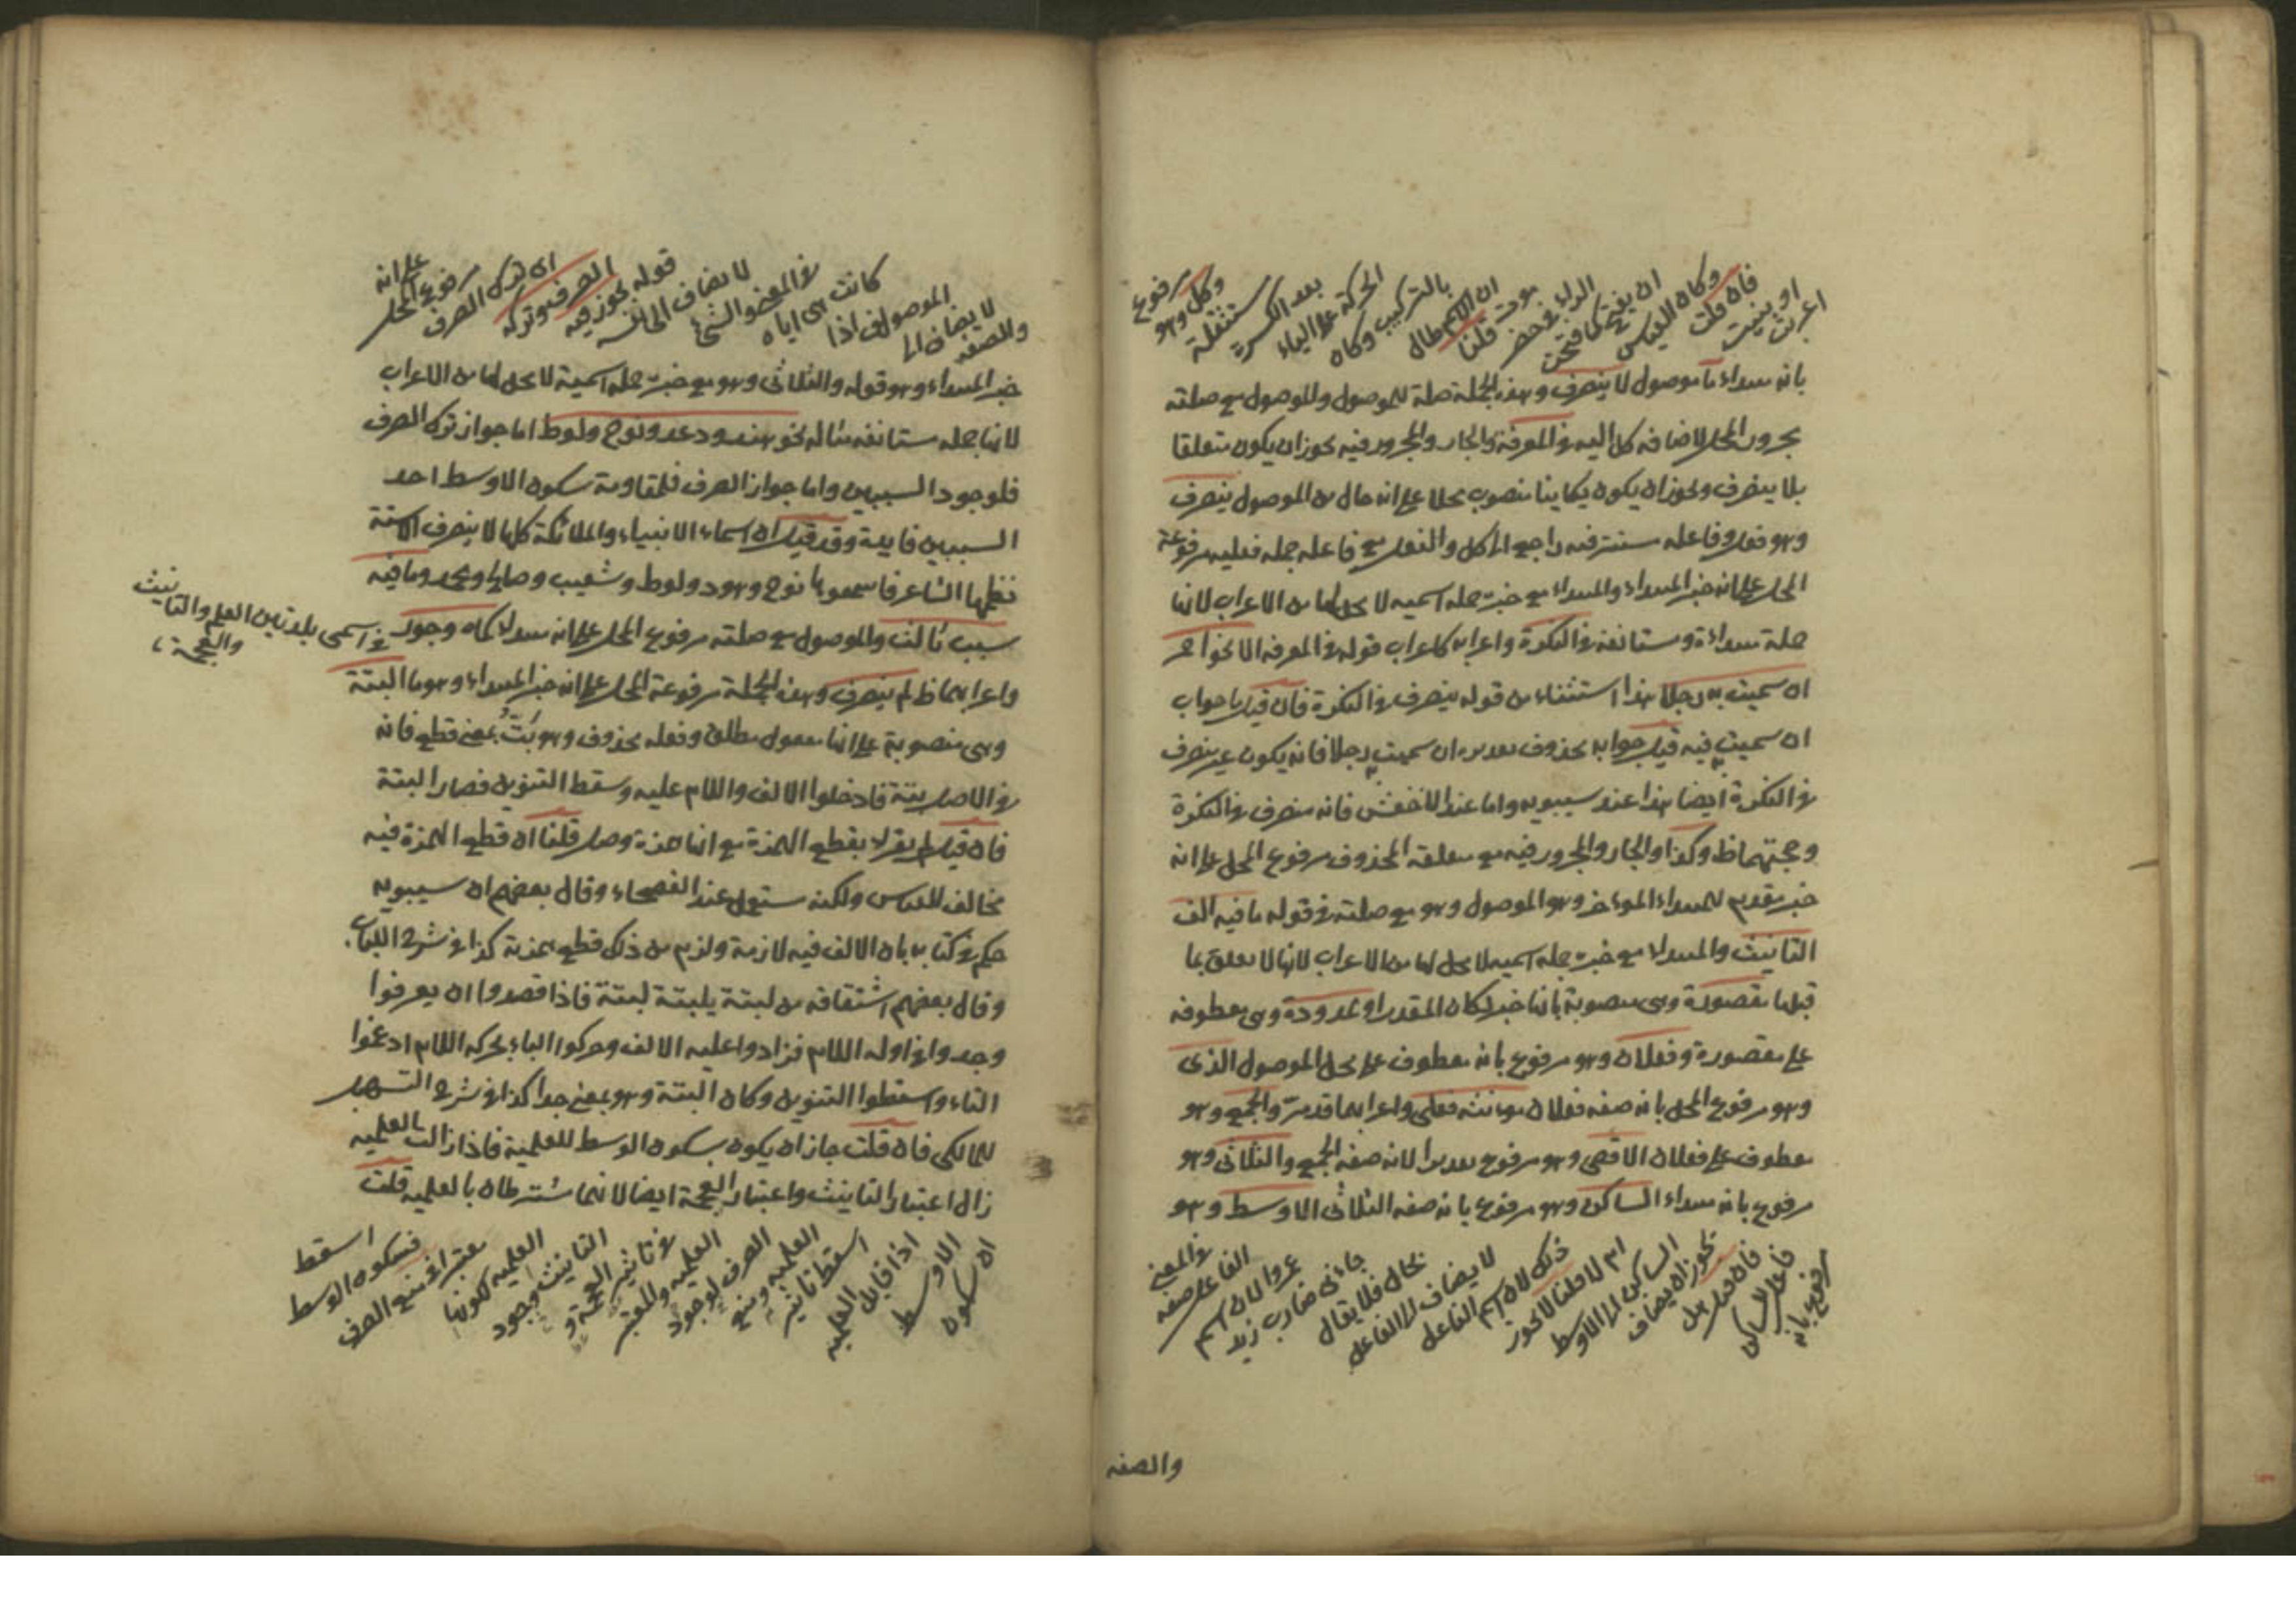 اعربت
او بنيت
فان قلت
وكان القياس
ان يفتح كما فتحت
الراء في حضر
موت قلنا
ان الاسم طال
بالتركيب وكان
الحركة على الياء
بعد الكسرة
مستثقلة
وكل وهو
مرفوع
بانه مبتداء ما موصول لا ينصرف وهذه الجملة صلة للموصول والموصول مع صلته
مجرور المحل لاضافة كل اليه في المعرفة والجار والمجرور فيه يجوز ان يكون متعلقا
بلا ينصرف ويجوز ان يكون منصوب محلا على انه حال من الموصول ينصرف
وهو فعل وفاعله مستتر فيه راجع الى كل والفعل مع فاعله جملة فعلية مرفوعة
المحل على انه خبر المبتداء والمبتداء مع خبره جملة اسمية لا محل لها من الاعراب لانها
جملة مبتداءة ومستانفة في النكرة واعرابه كاعراب قوله في المعرفة الا نحو احمر
ان سميت به رجلا هذا استثناء من قوله ينصرف في النكرة فان قيل ما جواب
ان سميت فيه قيل جوابه محذوف تقديره ان سميت به رجلا فانه يكون غير منصرف
في النكرة ايضا هذا عند سيبويه واما عند الاخفش فانه منصرف في النكرة
وحجتهما ظ وكذا والجار والمجرور فيه مع متعلقه المحذوف مرفوع المحل على انه
خبر مقدم للمبتداء المؤخر وهو الموصول وهو مع صلته في قوله ما فيه الف
التانيث والمبتداء مع خبره جملة اسمية لا محل لها من الاعراب لانها لا تعلق بما
قبلها مقصورة وهي منصوبة بانها خبر لكان المقدر او ممدودة وهي معطوفة
على مقصورة وفعلان وهو مرفوع بانه معطوف على محل الموصول الذى
وهو مرفوع المحل بانه صفة فعلان مونثه فعلى واعرابها قد مر والجمع وهو
معطوف على فعلان الاقصى وهو مرفوع تقديرا لانه صفة الجمع والثلاثى وهو
مرفوع بانه مبتداء الساكن وهو مرفوع بانه صفة الثلاثى الاوسط وهو
مرفوع بانه
فاعل الساكن
فان قيل هل
يجوز ان يضاف
الساكن الى الاوسط
ام لا قلنا لا يجوز
ذلك لان اسم الفاعل
لا يضاف الى الفاعل
بحال فلا يقال
جاءنى ضارب زيد
عمروا لان اسم
الفاعل صفة
في المعنى
والصفة
والصفة
لا يضاف الى
الموصوف اذا
كانت هى اياه
في المعنى والشئ
لا يضاف الى نفسه
قوله يجوز فيه
الصرف وتركه
اى ترك الصرف
مرفوع المحل
على انه
خبر المبتداء وهو قوله والثلاثى وهو مع خبره جملة اسمية لا محل لها من الاعراب
لانها جملة مستانفة مثاله نحو هند ودعد ونوح ولوط اما جواز ترك الصرف
فلوجود السببين واما جواز الصرف فلمقاومة سكون الاوسط احد
السببين فايدة وقد قيل ان اسماء الانبياء والملائكة كلها لا ينصرف الا ستة
نظمها الشاعر فاسمعوها نوح وهود ولوط وشعيب وصالح ومحمد وما فيه
سبب ثالث والموصول مع صلته مرفوع المحل على انه مبتداء كماه وجور
في اسمى بلدتين العلم والتانيث
والعجمة
واعرابهما ظ لم ينصرف وهذه الجملة مرفوعة المحل على انه خبر المبتداء وهو ما البتة
وهى منصوبة على انها مفعول مطلق وفعله محذوف وهو بَتَّ بمعنى قطع فانه
في الاصل بتة فادخلوا الالف واللام عليه وسقط التنوين فصار البتة
فان قيل لم يقرء بقطع الهمزة مع انها همزة وصل قلنا ان قطع الهمزة فيه
مخالف للقياس ولكنه مستعمل عند الفصحاء وقال بعضهم ان سيبويه
حكم في كتابه بان الالف فيه لازمة ولزم من ذلك قطع همزته كذا في شرح اللباب
وقال بعضهم اشتقاقه من لبتة يلبتة لبتة فاذا قصدوا ان يعرفوا
وجدوا في اوله اللام فزادوا عليه الالف وحركوا الباء بحركة اللام ادغموا
التاء واسقطوا التنوين وكان البتة وهو بمعنى جدا كذا في شرح التسهيل
للمالكى فان قلت جاز ان يكون بسكون الوسط للعلمية فاذا زالت العلمية
زال اعتبار التانيث واعتبار العجمة ايضا لانهما مشترطان بالعلمية قلت
ان سكون
الاوسط
اذا قابل العلمية
اسقط تاثير
العلمية ومنع
الصرف لوجود
العلمية والمعتبر
في تاثير العجمة و
التانيث وجود
العلمية لكونها
معتبرا في منع الصرف
فسكون الوسط
اسقط